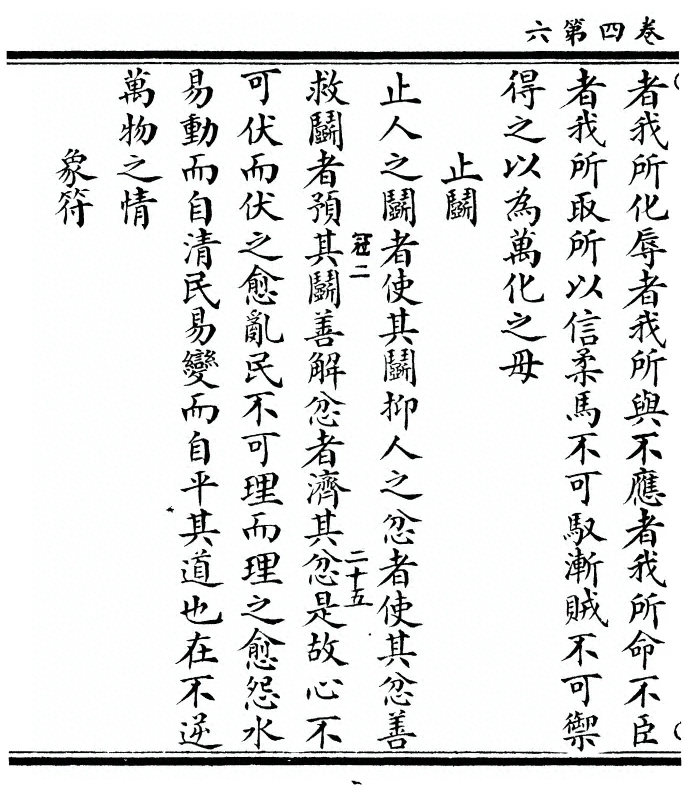 卷四第六
者我所化辱者我所與不應者我所命不臣
者我所取所以信柔馬不可馭漸賊不可禦
得之以為萬化之母
止鬭
止人之鬭者使其鬭抑人之忿者使其忿善
冠二
二十五
救鬭者預其鬭善解忿者濟其忿是故心不
可伏而伏之愈亂民不可理而理之愈怨水
易動而自清民易變而自平其道也在不逆
萬物之情
象符